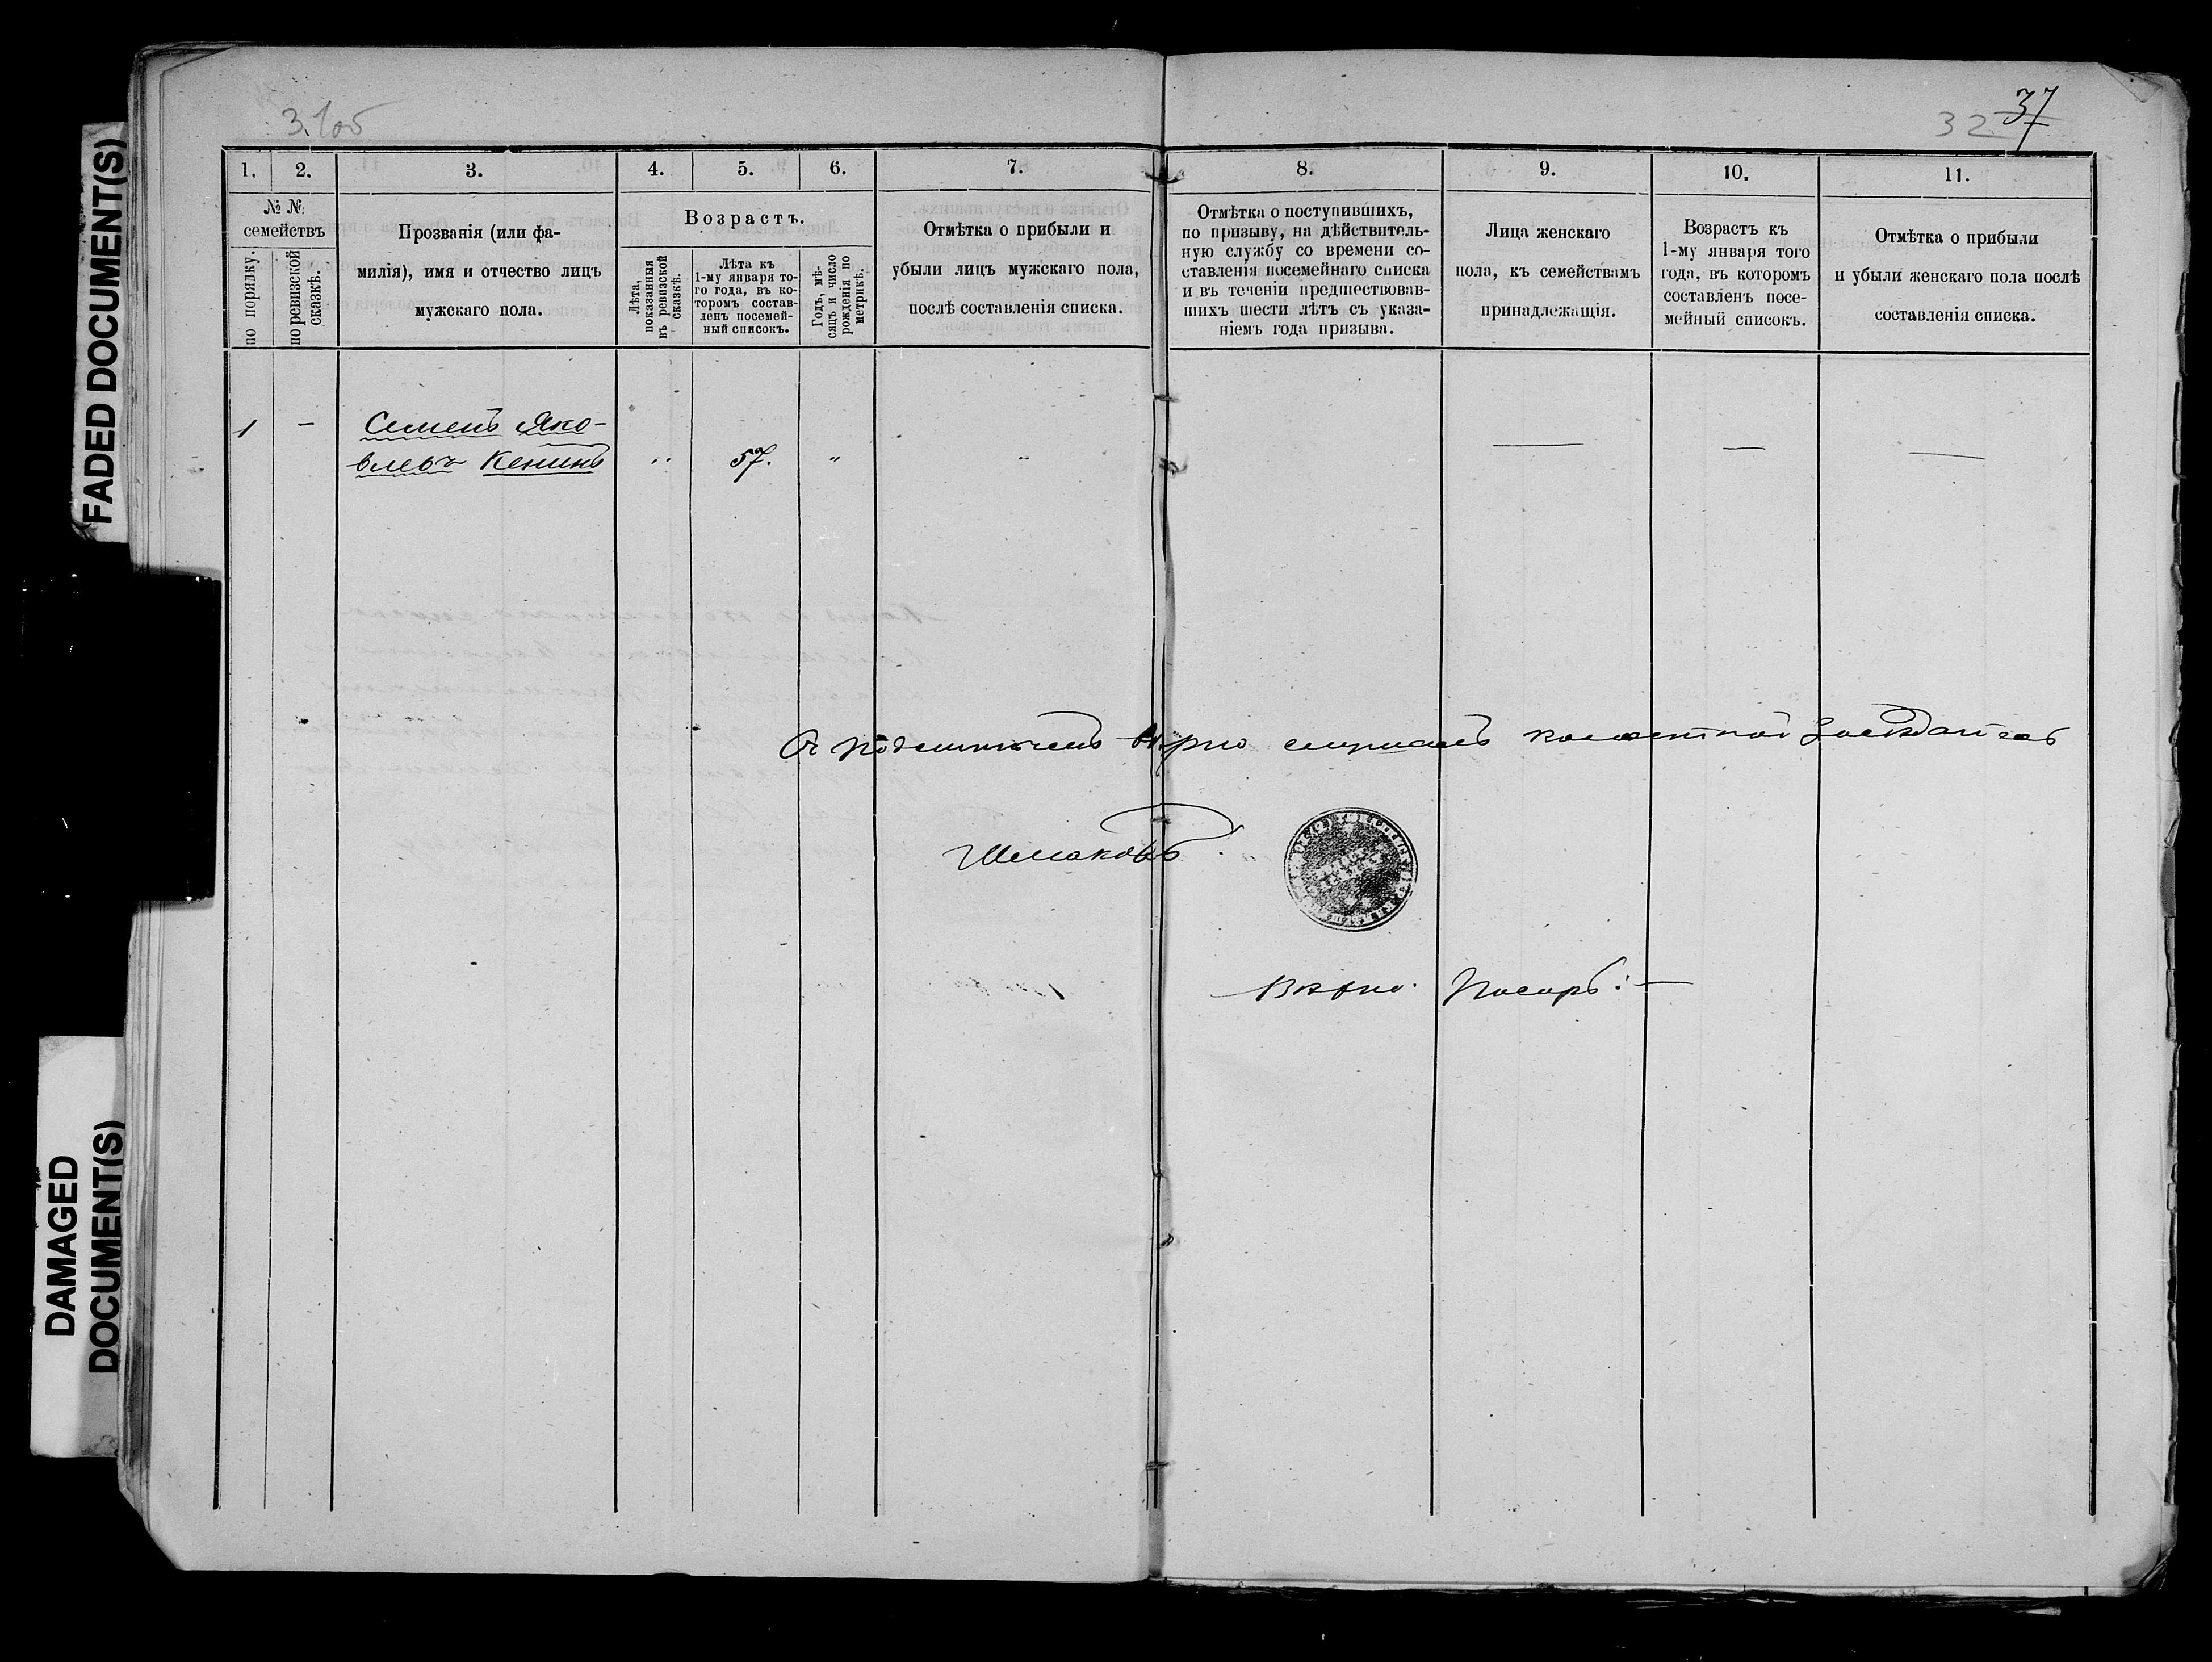 FADED DOCUMENT(S)
DAMAGED
DOCUMENT(S)
31об
32 37
1. 2. 3. 4. 5. 6. 7. 8. 9. 10. 11.
№ №
семействъ
по порядку.
по ревизской
сказкѣ.
Прозванія (или фа-
милія), имя и отчество лицъ
мужскаго пола.
Возрастъ.
Лѣта,
показанныя
въ ревизской
сказкѣ.
Лѣта къ
1-му января то-
го года, въ ко-
торомъ состав-
ленъ посемей-
ный списокъ.
Годъ, мѣ-
сяцъ и число
рожденія по
метрикѣ.
Отмѣтка о прибыли и
убыли лицъ мужскаго пола,
послѣ составленія списка.
Отмѣтка о поступившихъ,
по призыву, на дѣйствитель-
ную службу со времени со-
ставленія посемейнаго списка
и въ теченіи предшествовав-
шихъ шести лѣтъ съ указа-
ніемъ года призыва.
Лица женскаго
пола, къ семействамъ
принадлежащія.
Возрастъ къ
1-му января того
года, въ которомъ
составленъ посе-
мейный списокъ.
Отмѣтка о прибыли
и убыли женскаго пола послѣ
составленія списка.
1 – Семенъ Яко-
влевъ Кенинъ " 57. " " — — —
Съ подлиннымъ вѣрно
Шмаковъ.
Вѣрно. Писарь: —